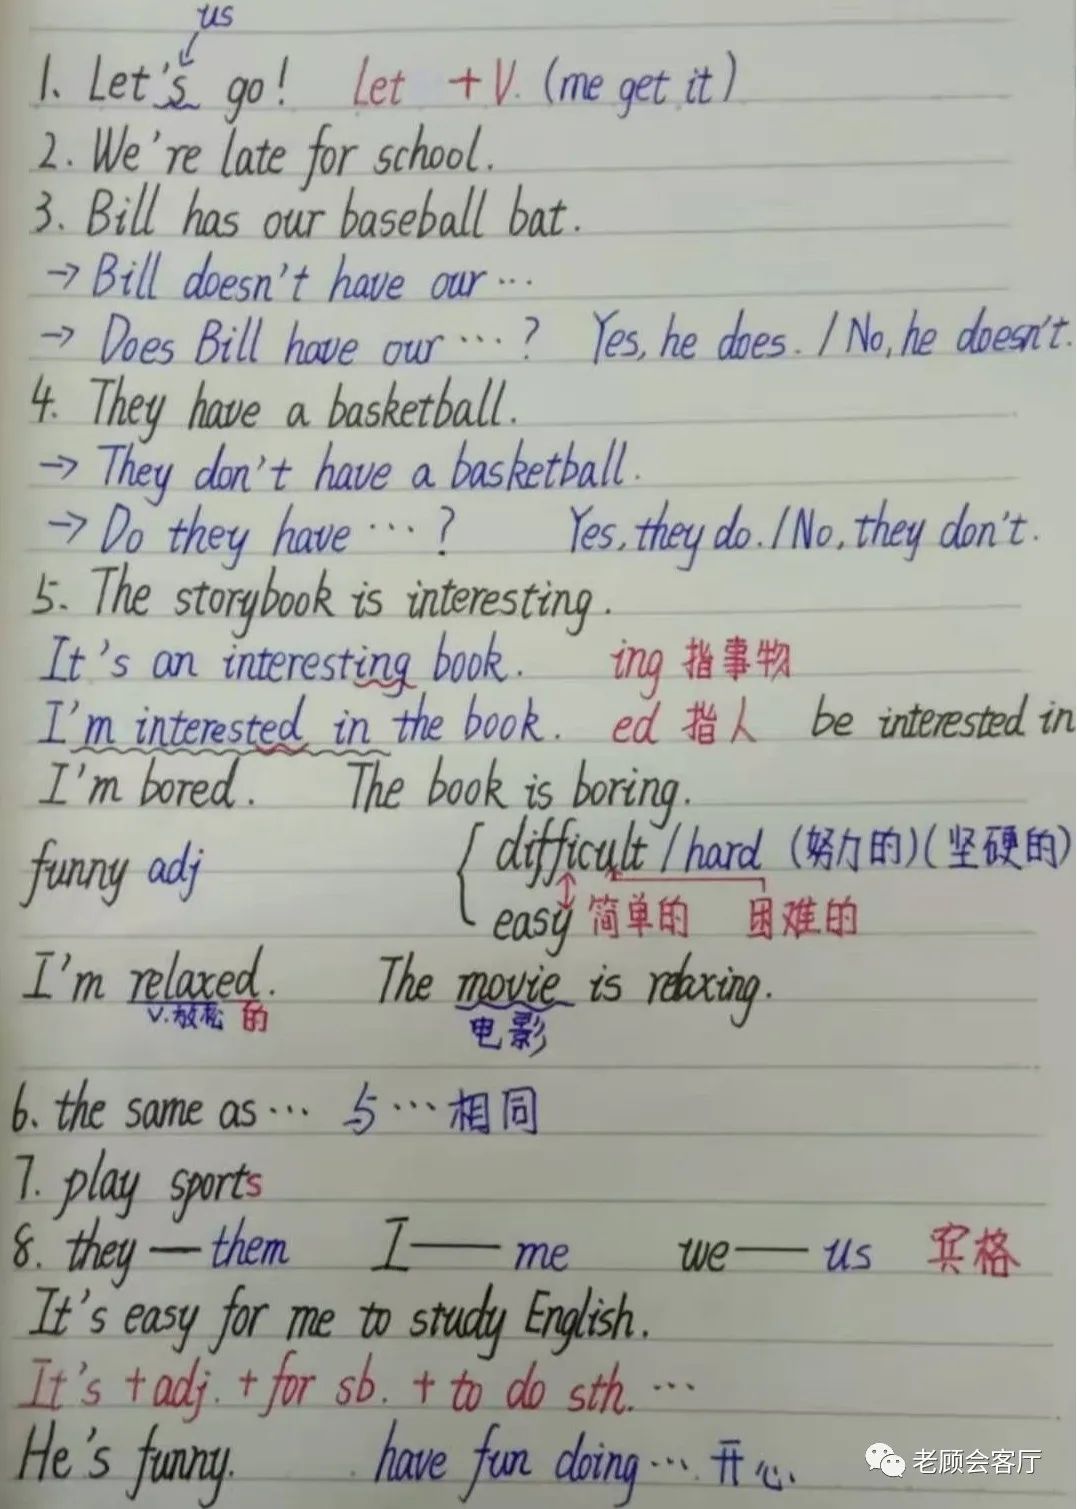 us
1. Let's go! Let +V. (me get it)
2. We're late for school.
3. Bill has our baseball bat.
→ Bill doesn't have our…
→ Does Bill have our…? Yes, he does. / No, he doesn't.
4. They have a basketball.
→ They don't have a basketball.
→ Do they have…? Yes, they do. / No, they don't.
5. The storybook is interesting.
It's an interesting book. ing 指事物
I'm interested in the book. ed 指人 be interested in
I'm bored. The book is boring.
funny adj difficult / hard (努力的)(坚硬的)
easy 简单的 困难的
I'm relaxed. The movie is relaxing.
v.放松 的 电影
6. the same as… 与…相同
7. play sports
8. they — them I — me we — us 宾格
It's easy for me to study English.
It's + adj. + for sb. + to do sth. …
He's funny. have fun doing… 开心
老顾会客厅